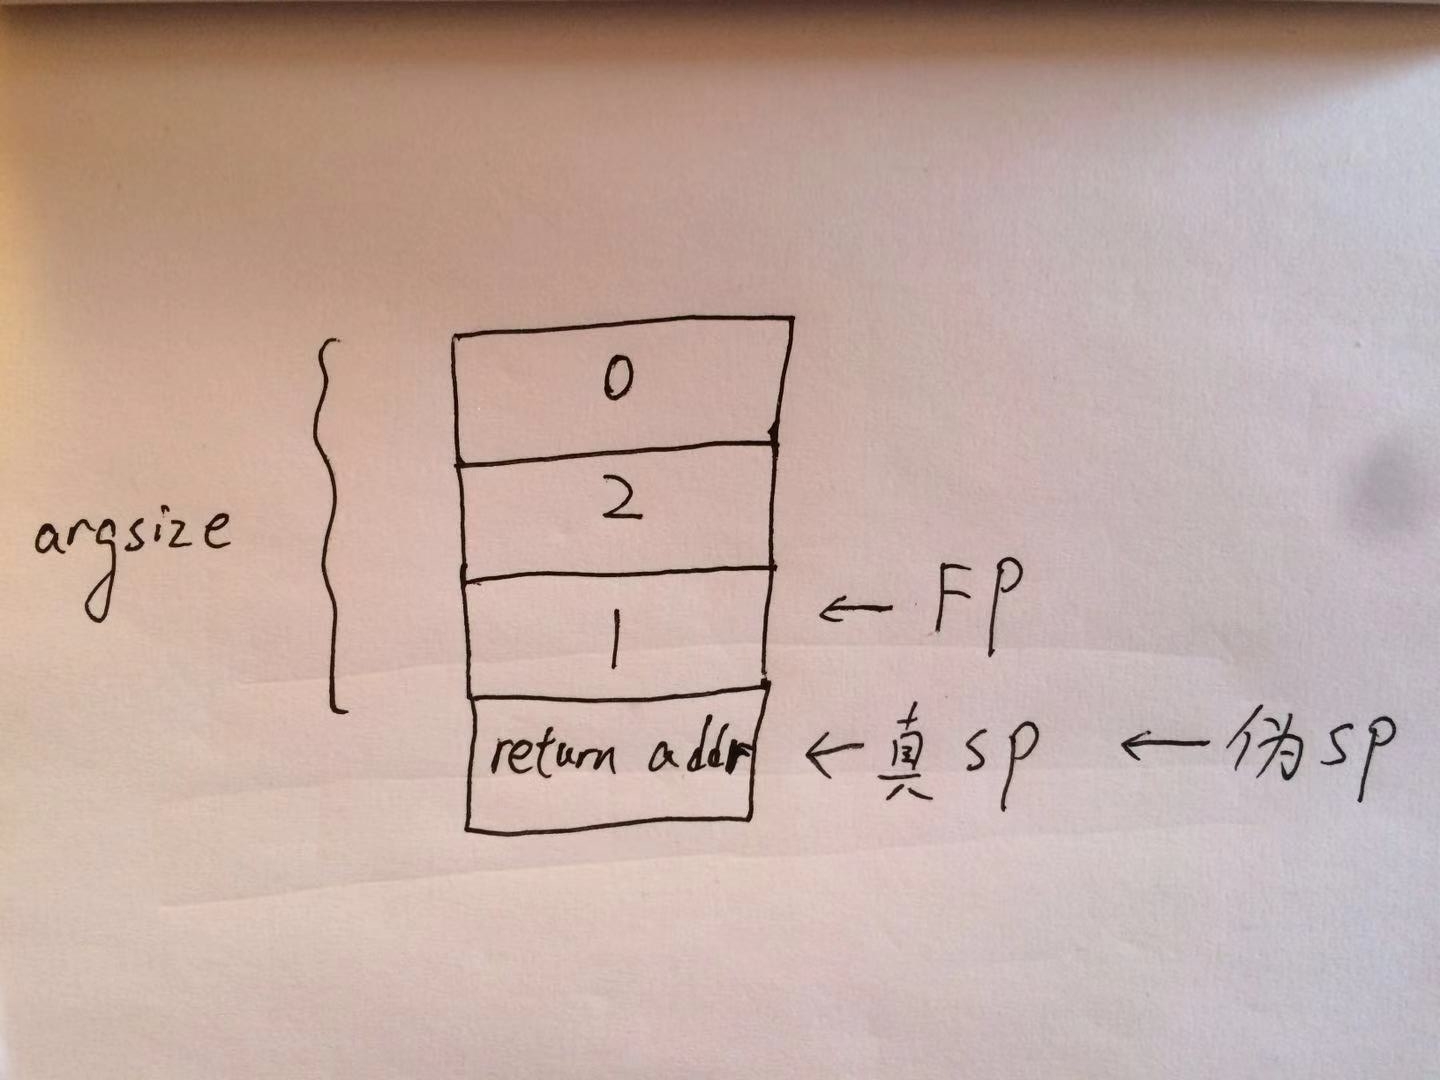 0
2
argsize
1
← FP
return addr
← 真 SP
← 伪SP